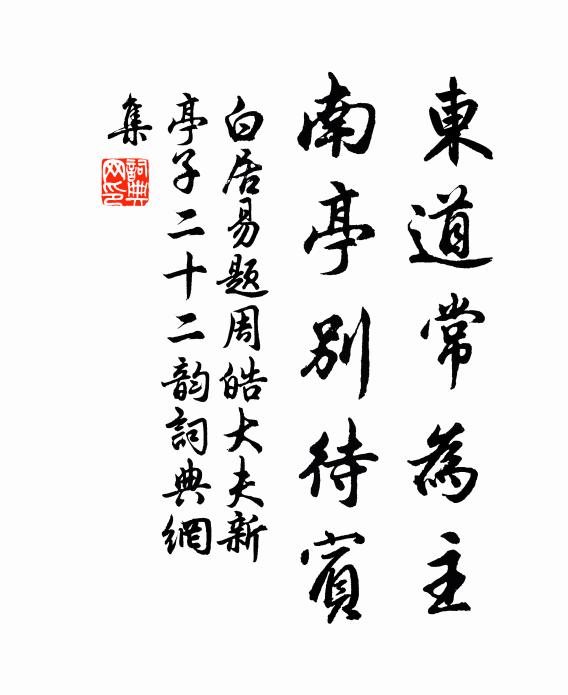 東道常為主
南亭別待賓
白居易題周皓大夫新
亭子二十二韵詞典網
集
詞典
网印